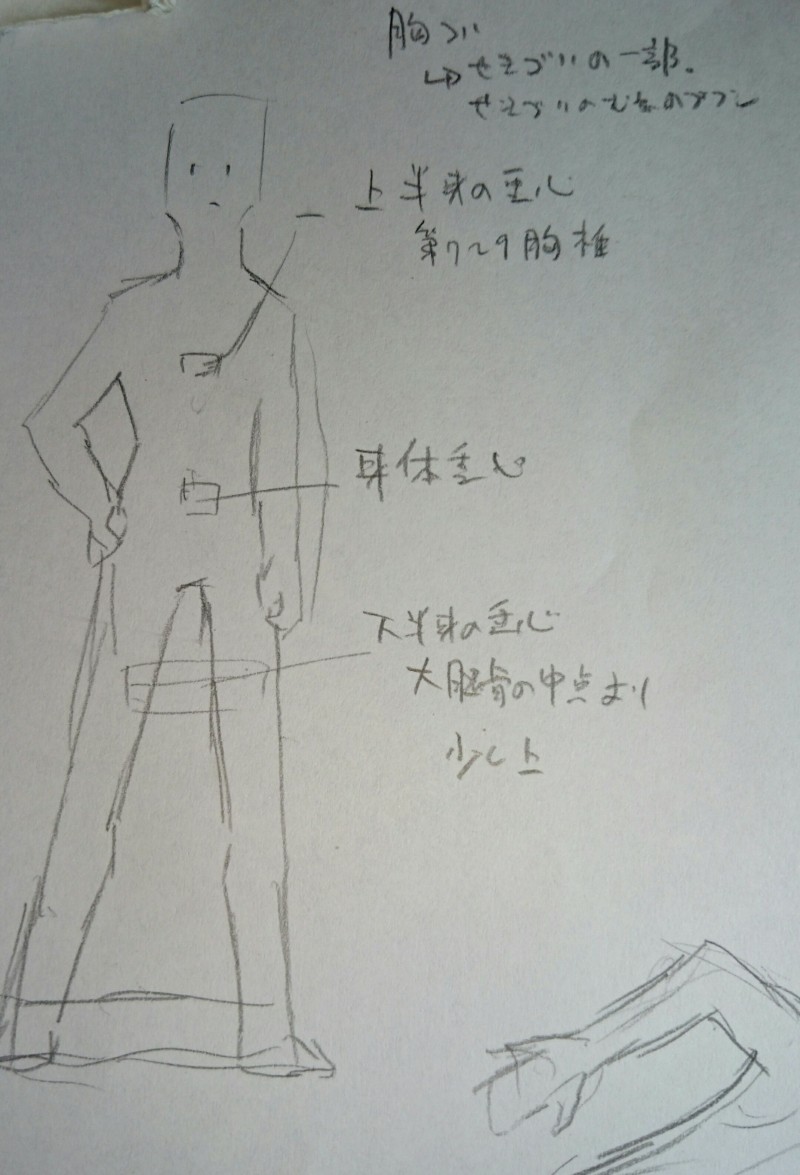 胸つい
↳せきずいの一部。
せきずいの
上半身の重心
第7~9胸椎
身体重心
下半身の重心
大腿骨の中点より
少し上